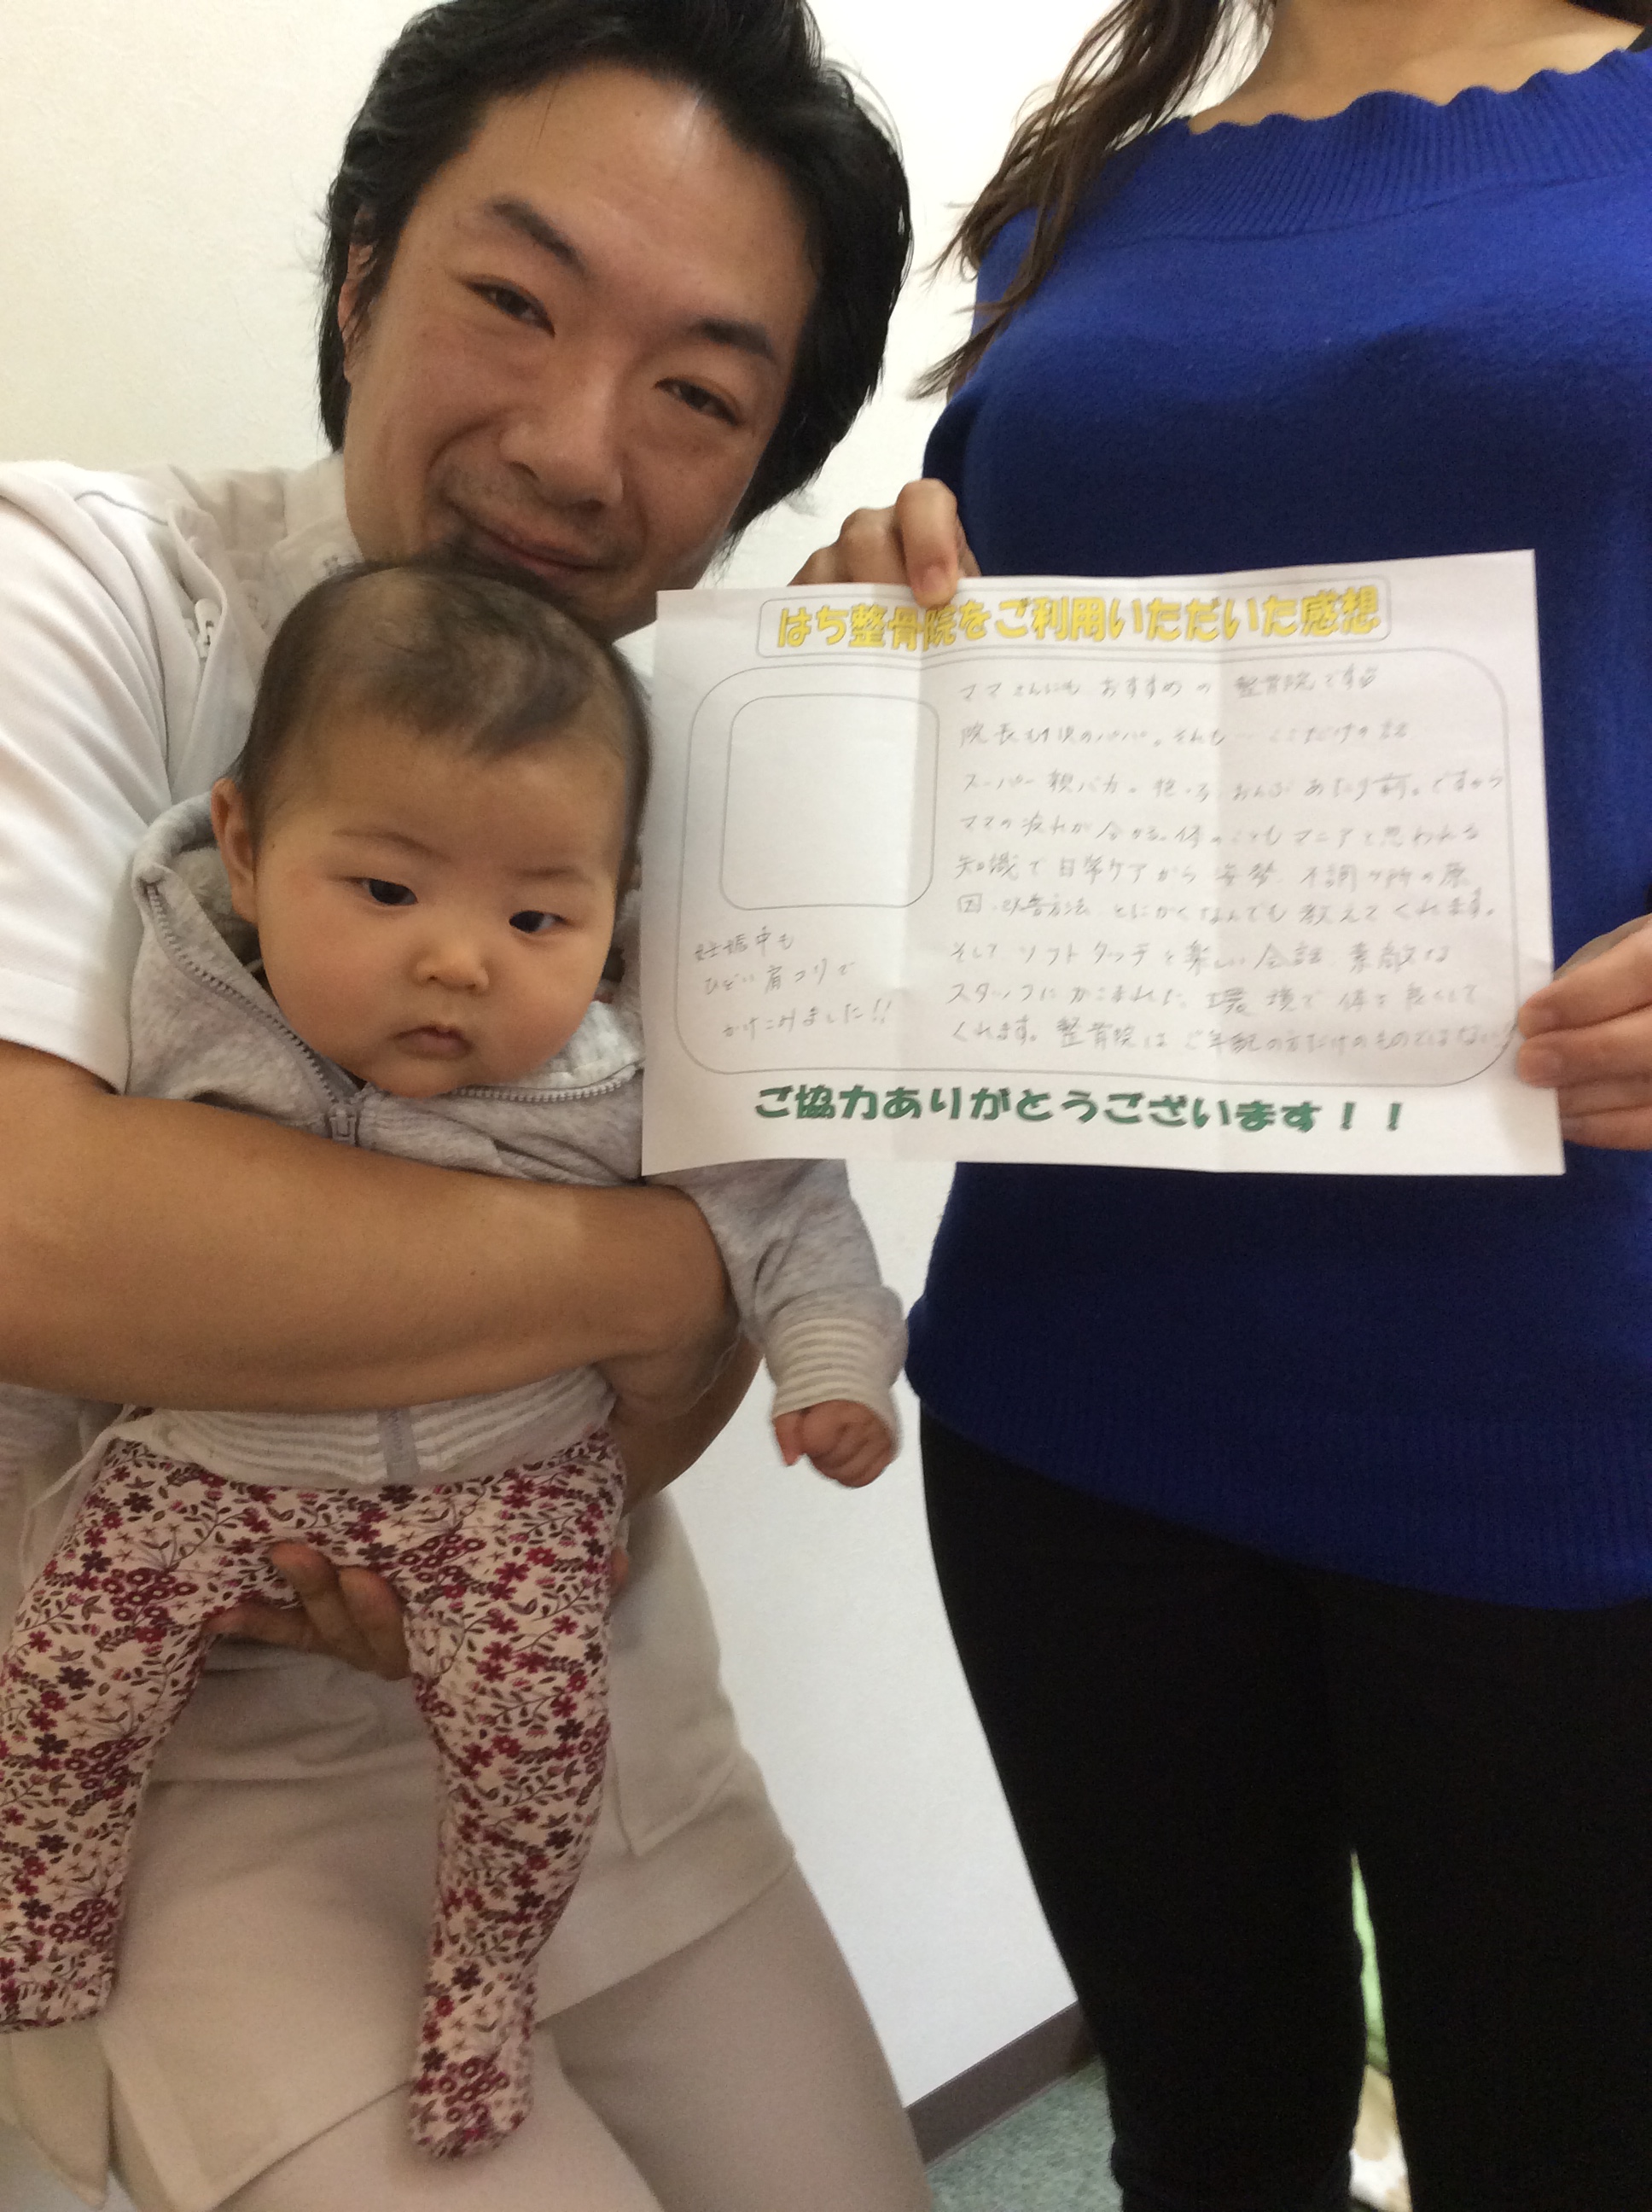 はち整骨院をご利用いただいた感想
ママさんにも おすすめ の 整骨院です
院長も1児のパパ。それも… ここだけの話
スーパー親バカ。抱っこ おんぶ あたり前。ですから
ママの疲れが分かる。体のこともマニアと思われる
知識で日常ケアから 姿勢、不調か所の原
因、改善方法 とにかくなんでも教えてくれます。
そして ソフトタッチと楽しい会話 素敵な
スタッフにかこまれた 環境で 体を良くして
くれます。整骨院は ご年配の方だけのものではない!
妊娠中も
ひどい肩コリで
かけこみました!!
ご協力ありがとうございます！！